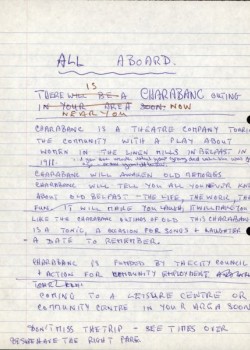 ALL ABOARD.
IS
THERE WILL BE A CHARABANC OUTING
IN YOUR AREA SOON. NOW
NEAR YOU
CHARABANC IS A THEATRE COMPANY TOURING
THE COMMUNITY WITH A PLAY ABOUT
WOMEN IN THE LINEN MILLS IN BELFAST IN
1911.
CHARABANC WILL AWAKEN OLD MEMORIES
CHARABANC WILL TELL YOU ALL YOU NEVER KNEW
ABOUT OLD BELFAST - THE LIFE, THE WORK, THE
FUN. IT WILL MAKE YOU LAUGH,
LIKE THE CHARABANC OUTINGS OF OLD THIS CHARABANC
IS A TONIC, A OCCASION FOR SONGS & LAUGHTER
- A DATE TO REMEMBER.
CHARABANC IS FUNDED BY THE CITY COUNCIL
& ACTION FOR COMMUNITY EMPLOYMENT
COMING TO A LEISURE CENTRE OR
COMMUNITY CENTRE IN YOUR AREA SOON
DON'T MISS THE TRIP - SEE TIMES OVER
THE RIGHT PAGE